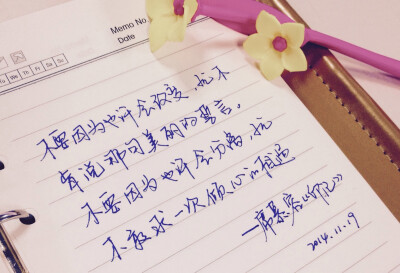 Memo No.
Date
Tu We Th Fr Sa Su
不要因为也许会改变,就不
肯说那句美丽的誓言。
不要因为也许会分离,就
不敢求一次倾心的相遇
—席慕容《印记》
2014.11.19